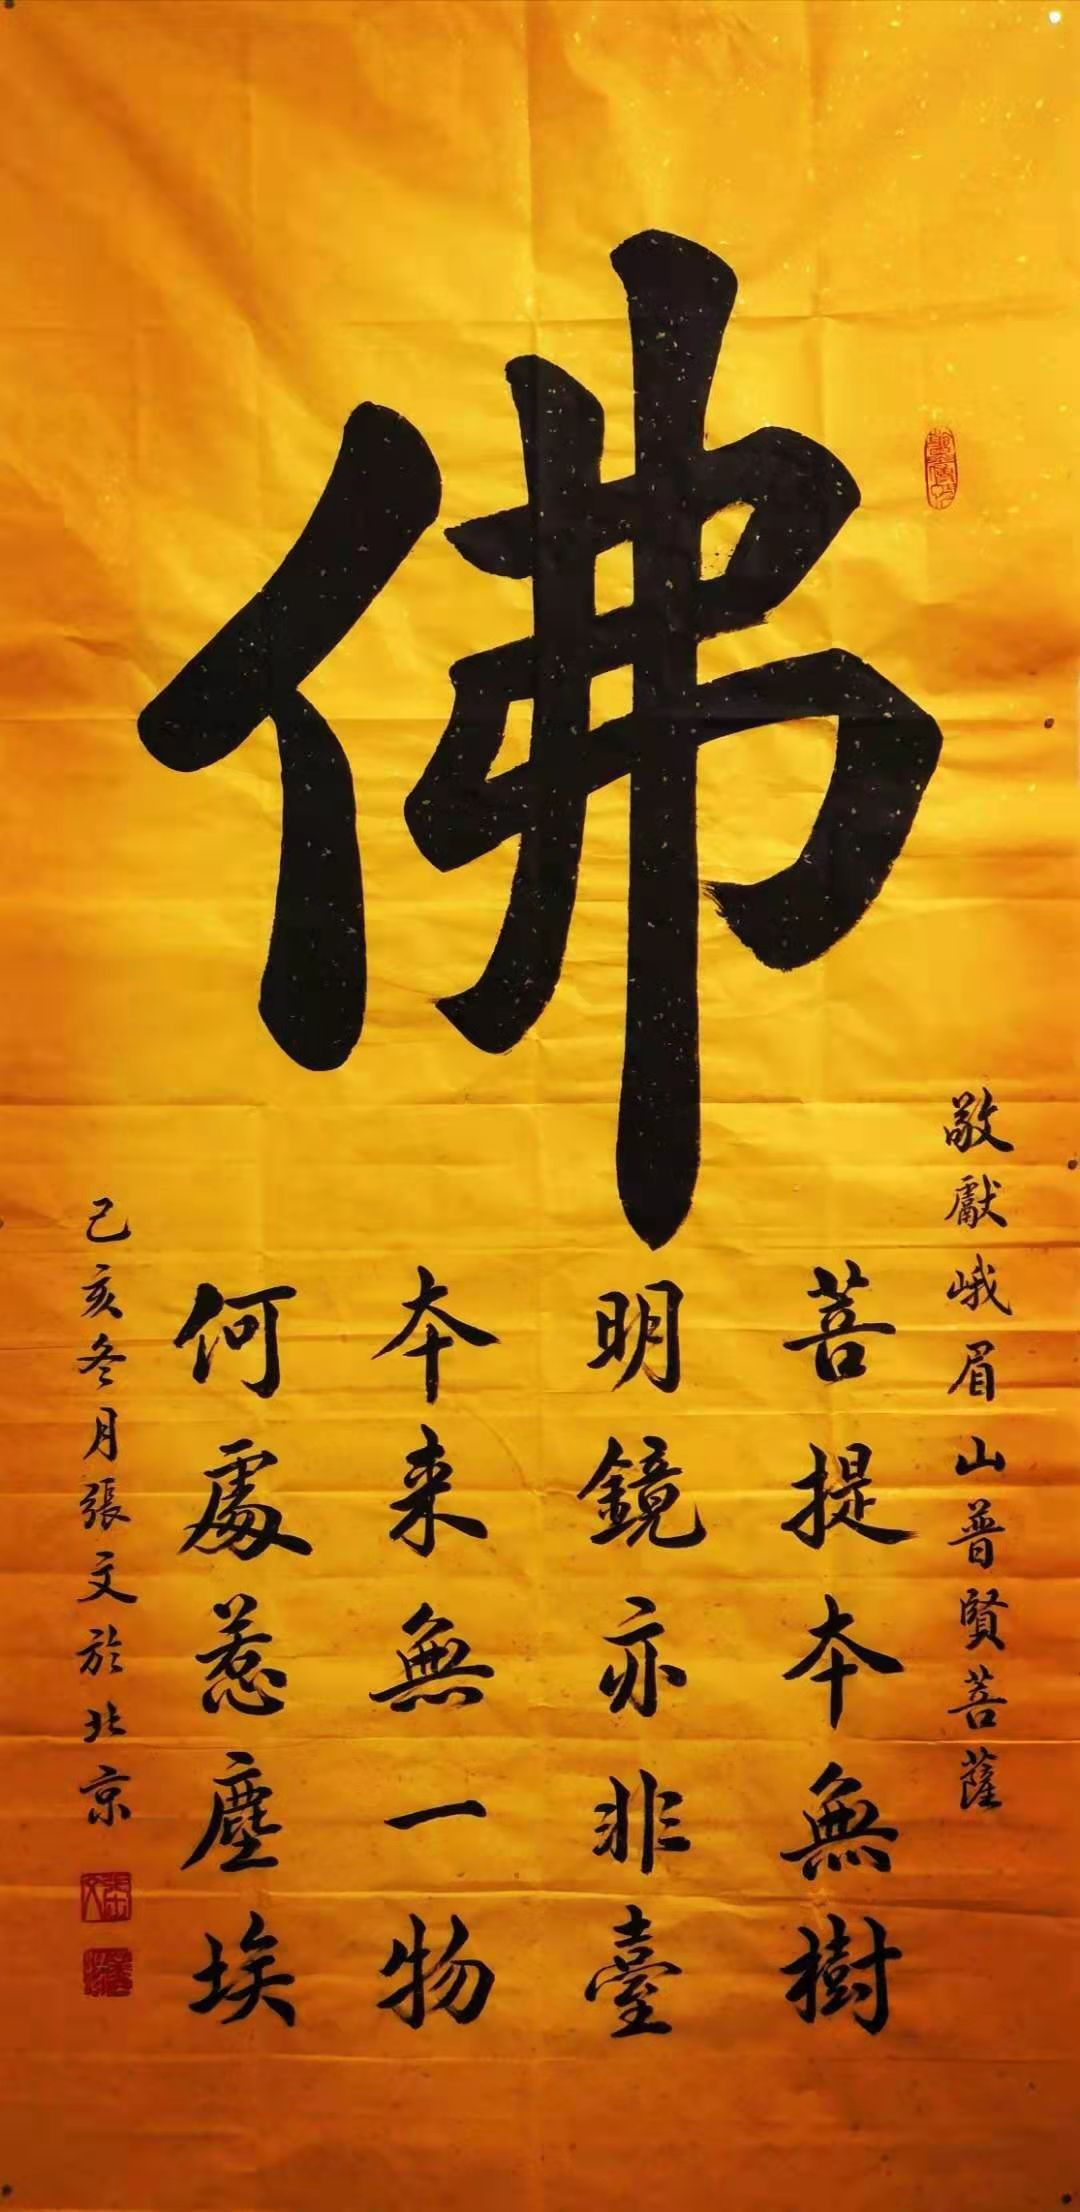 佛
敬獻峨眉山普賢菩薩
菩提本無樹
明鏡亦非臺
本来無一物
何處惹塵埃
己亥冬月張文於北京